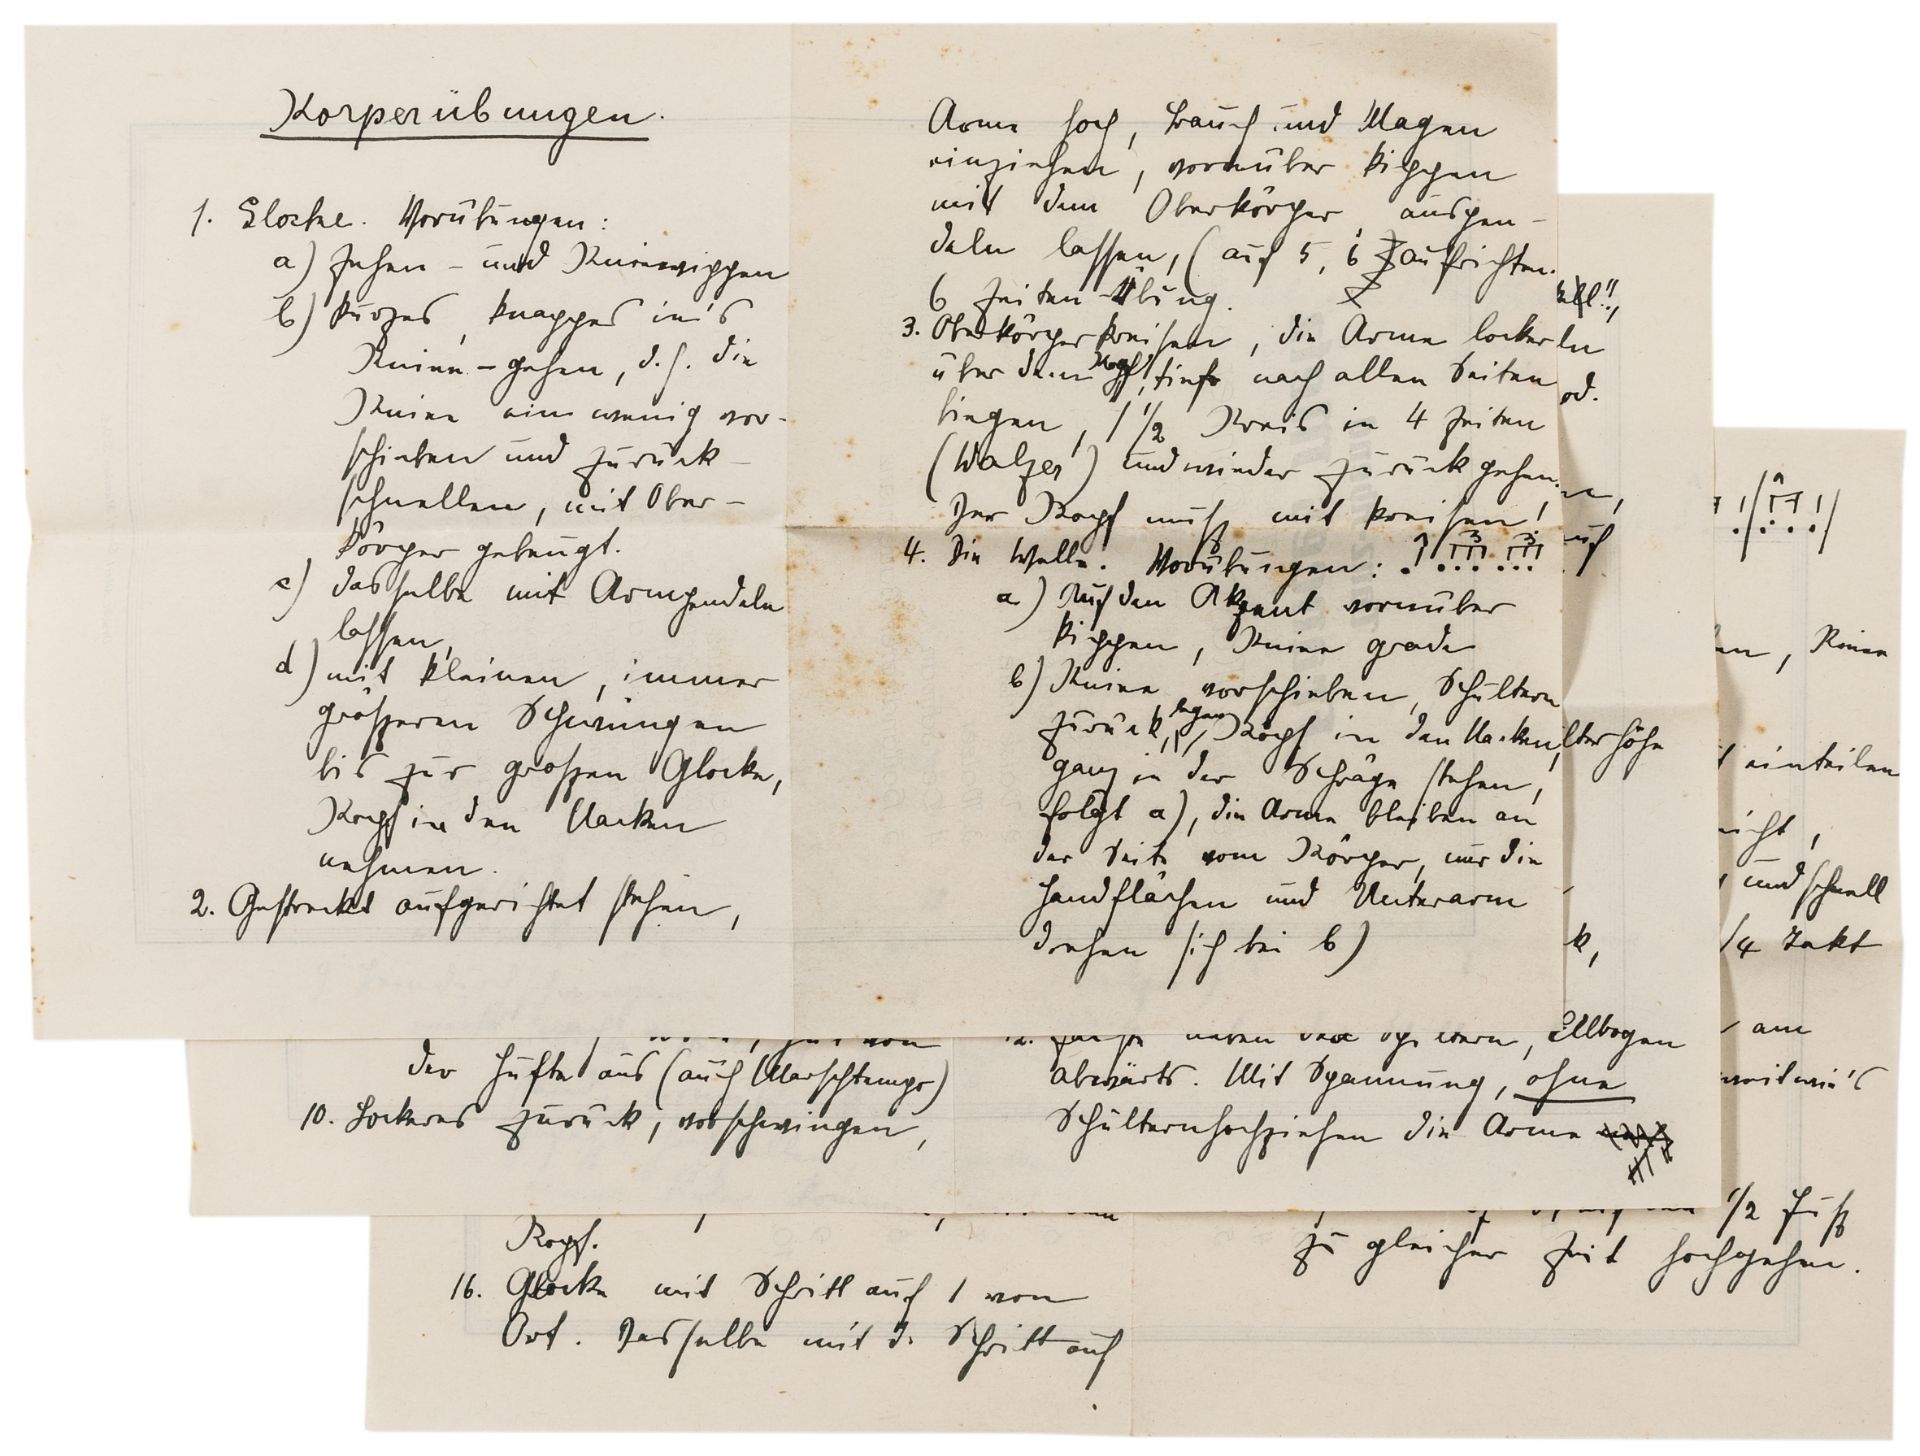 Körperübungen.
1. Glocke. Vorübungen:
a) Zehen- und Kniewippen
b) kurzes, knappes in's
Kniee-gehen, d. h. die
Kniee ein wenig vor-
schieben und zurück-
schnellen, mit Ober-
körper gebeugt.
c) dasselbe mit Armpendeln
lassen,
d) mit kleinen, immer
größeren Schwüngen
bis zur großen Glocke,
Kopf in den Nacken
nehmen.
2. Gestreckt aufgerichtet stehen,
Arme hoch, Bauch und Magen
einziehen, vornüber kippen
mit dem Oberkörper, auspen-
deln lassen, (auf 5, 6 aufrichten.
6 Zeiten-Übung.
3. Oberkörperkreisen, die Arme locker
über dem Kopf, tief nach allen Seiten
biegen, 1 1/2 Kreis in 4 Zeiten
(Walzer) und wieder zurück gehen.
Der Kopf muß mit kreisen!
4. Die Welle. Vorübungen:
a) Auf den Akzent vornüber
kippen, Kniee grade
b) Kniee vorschieben, Schultern
zurück legen, Kopf in den Nacken,
ganz in der Schräge stehen,
folgt a), die Arme bleiben an
der Seite vom Körper, nur die
Handflächen und Unterarm
drehen sich bei b)
ln
od.
n,
auf
lterhöhe
k,
der Hüfte aus (auch Marschtempo)
10. Lockeres zurück, vorschwingen,
12. Fäuste neben den Ohren, Ellbogen
abwärts. Mit Spannung, ohne
Schulternhochziehen die Arme
en, Kniee
einteilen
nicht,
und schnell
/4 Takt
am
Kopf.
16. Glocke mit Schritt auf 1 vom
Ort. Dasselbe mit d. Schritt auf
1/2 Fuß
zu gleicher Zeit hochgehen.